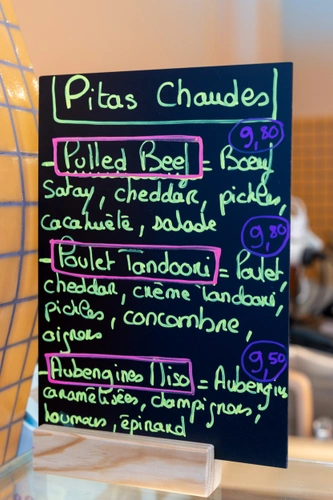 Pitas Chaudes
9,80
- Pulled Beef = Boeuf
Satay, cheddar, pickles,
cacahuète, salade
9,80
- Poulet Tandoori = Poulet
cheddar, crème tandoori,
pickles, concombre,
oignons
9,50
- Aubergines Miso = Aubergines
caramélisées, champignons,
houmous, épinard